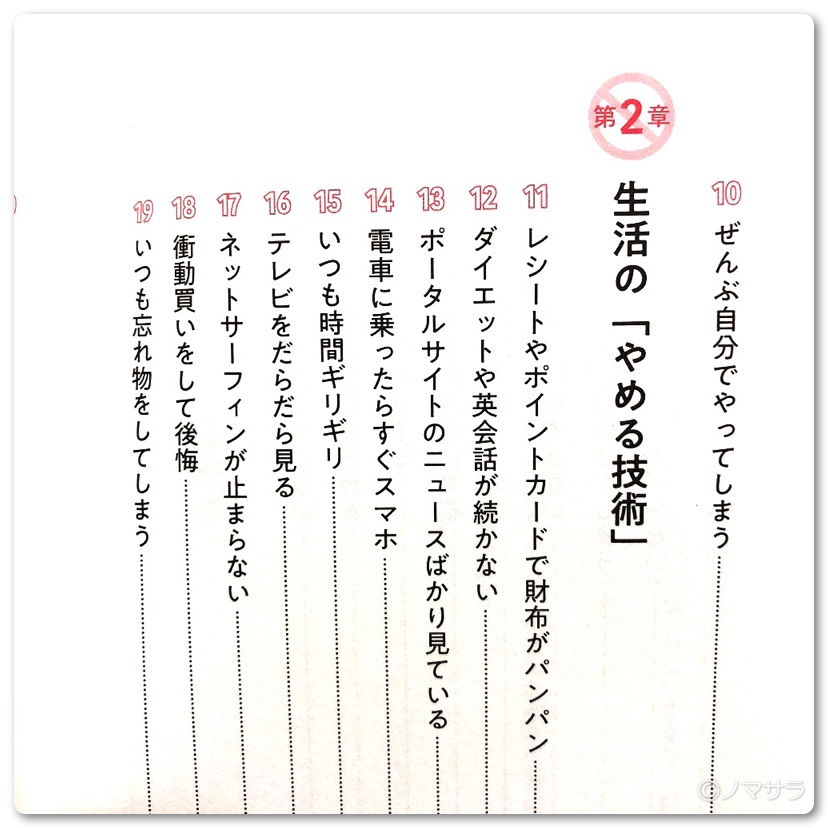 10 ぜんぶ自分でやってしまう
第2章
生活の「やめる技術」
11 レシートやポイントカードで財布がパンパン
12 ダイエットや英会話が続かない
13 ポータルサイトのニュースばかり見ている
14 電車に乗ったらすぐスマホ
15 いつも時間ギリギリ
16 テレビをだらだら見る
17 ネットサーフィンが止まらない
18 衝動買いをして後悔
19 いつも忘れ物をしてしまう
©ノマサラ